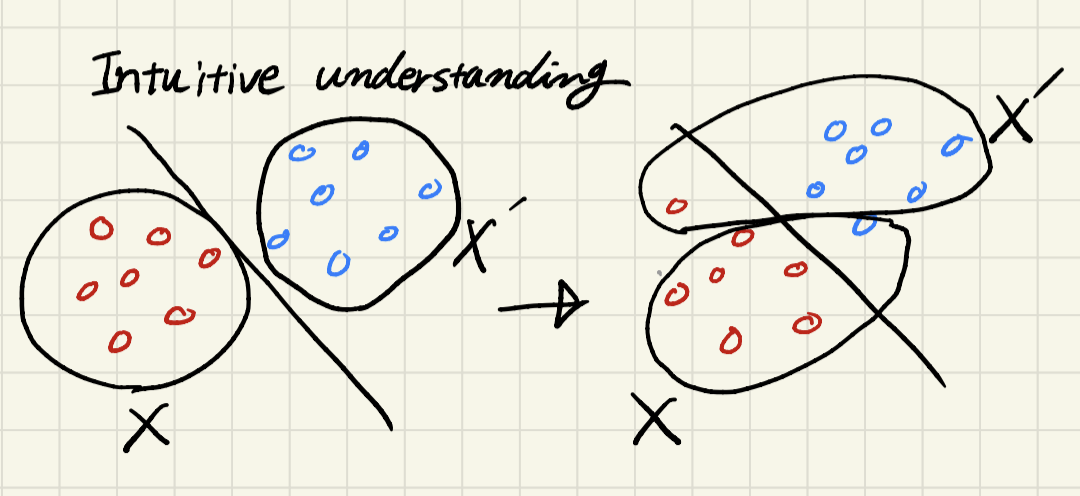 Intuitive understanding
X′
X′
X
X